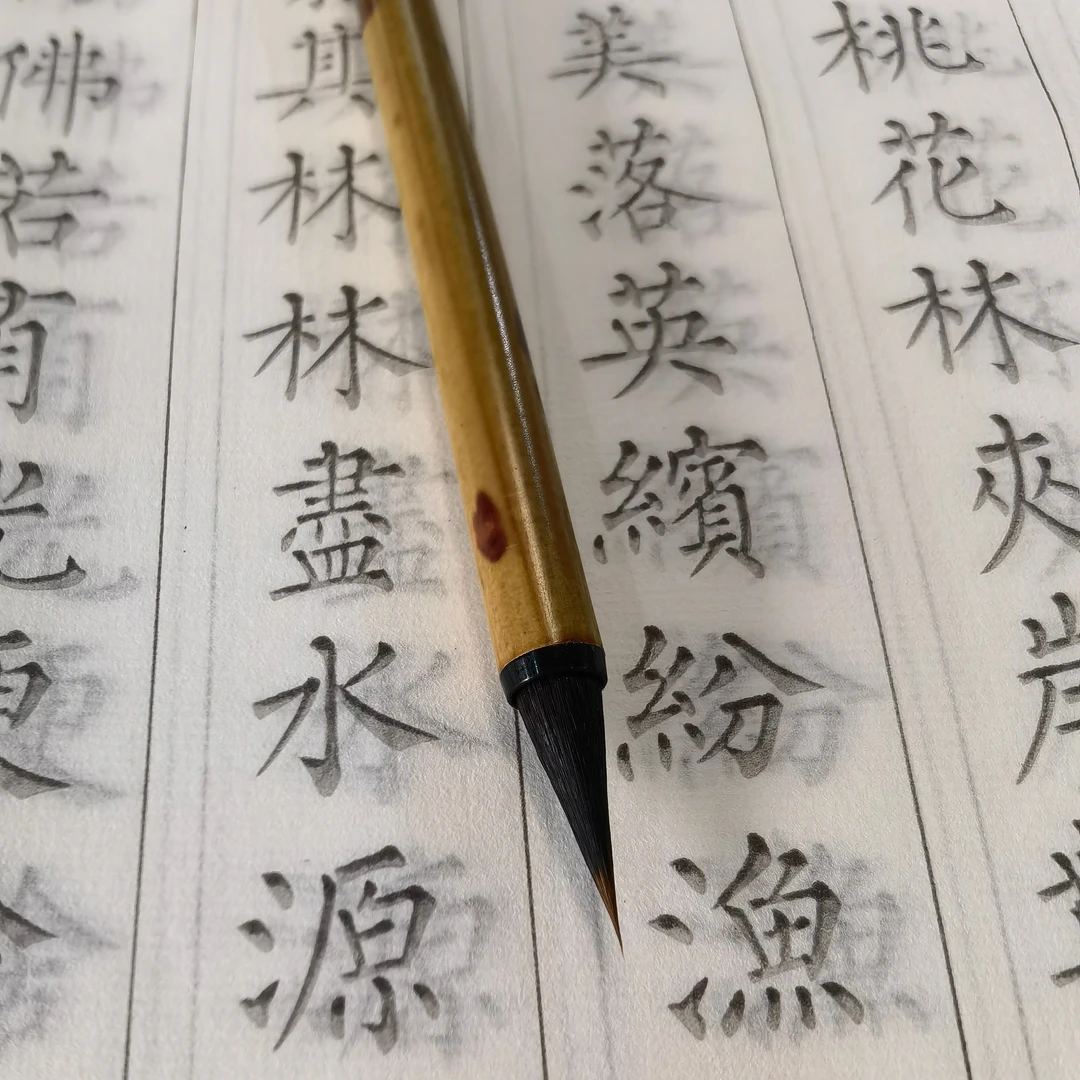 桃花林夾岸
美落英繽紛漁
其林林盡水源
佛若有光便